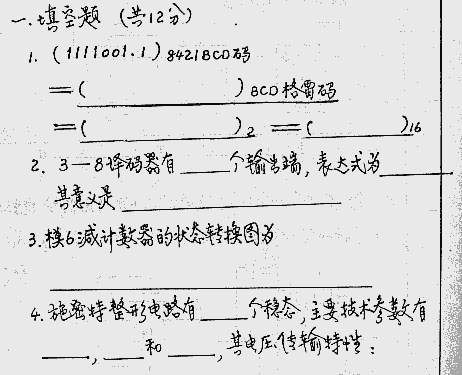 一.填空题 (共12分)
1. (1111001.1)8421BCD码
=( )BCD格雷码
=( )2 =( )16
2. 3—8译码器有____个输出端,表达式为____
其意义是____
3.模6减计数器的状态转换图为
4.施密特整形电路有____个稳态,主要技术参数有
____,____和____,其电压传输特性: